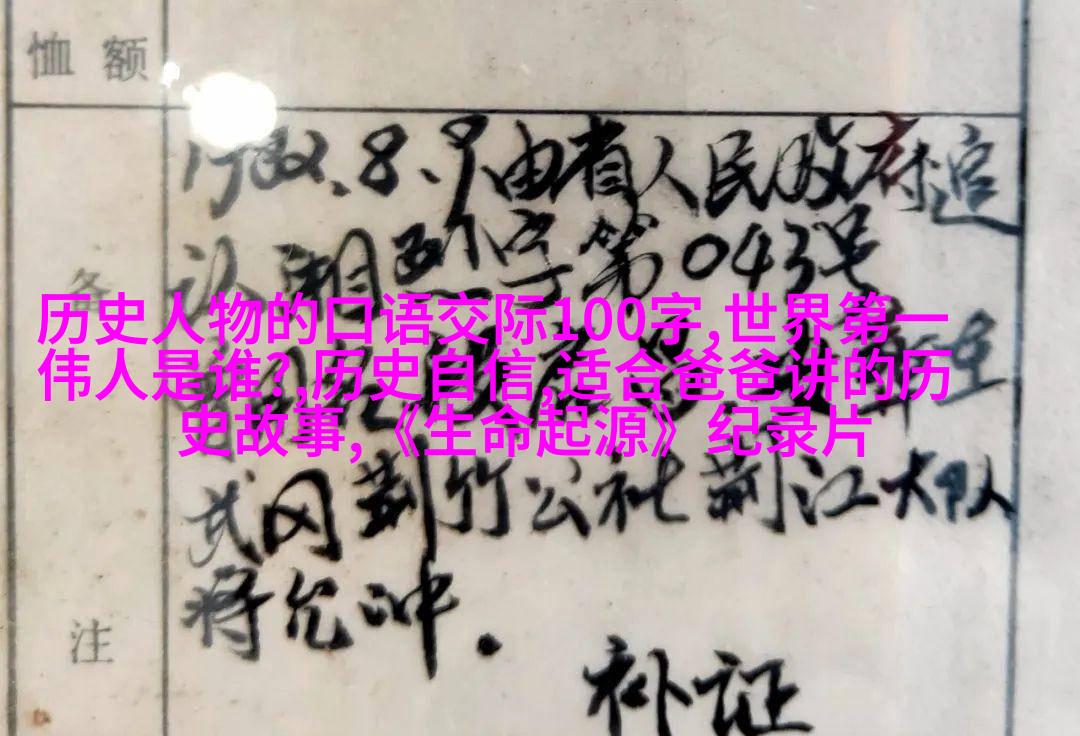 恤 额
由省人民政府追
认湘烈字第043号
备
历史人物的口语交际100字,世界第一
伟人是谁?,历史自信,适合爸爸讲的历
史故事,《生命起源》纪录片
武冈荆竹公社荆江大队
蒋允冲.
注
补证